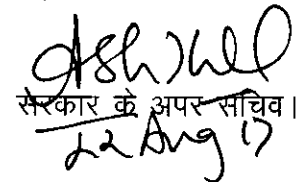 सरकार के अपर सचिव।
22 Aug 17